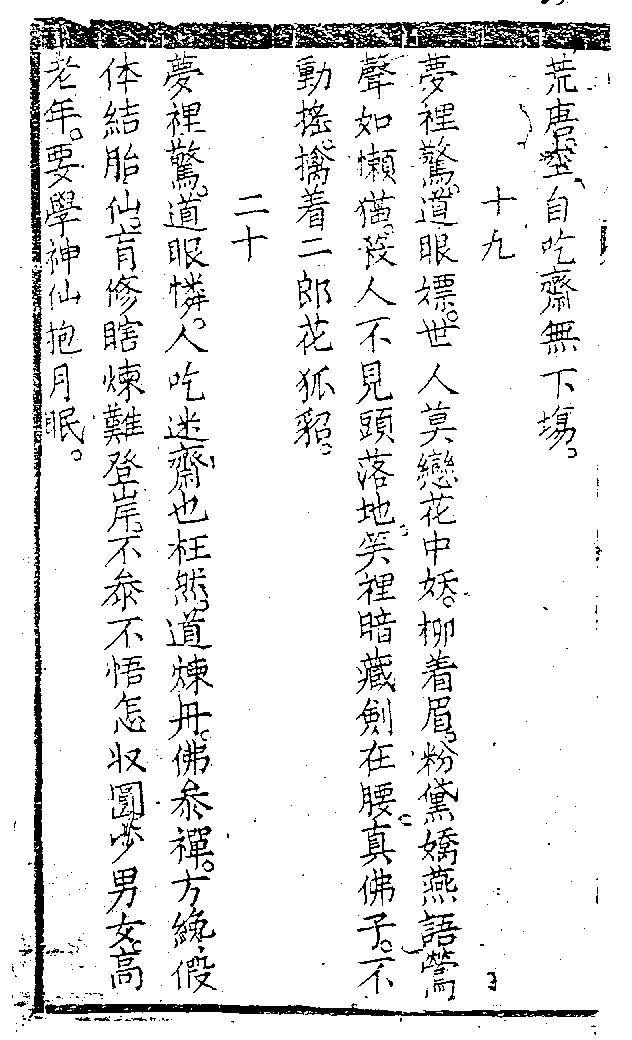 荒唐。空自吃齋無下場。
十九
夢裡驚。道眼嫖。世人莫戀花中嬌。柳着眉。粉黛嬌燕語鶯
聲如懶猫。殺人不見頭落地。笑裡暗藏劍在腰。真佛子。不
動搖。擒着二郎花狐貂。
二十
夢裡驚。道眼憐。人吃迷齋也枉然。道煉丹。佛叅禪。方纔假
体結胎仙。盲修瞎煉難登岸。不叅不悟怎収圓。少男女。高
老年。要學神仙抱月眠。